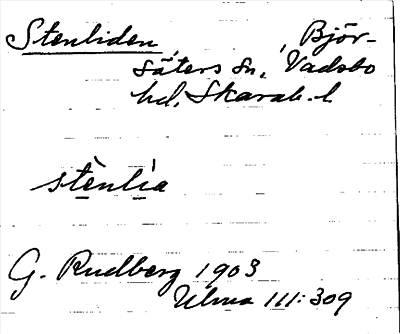 Stenliden, Björ-
säters sn, Vadsbo
hd, Skarab. l.
stènlía
G. Rudberg 1903
Ulma 111:309